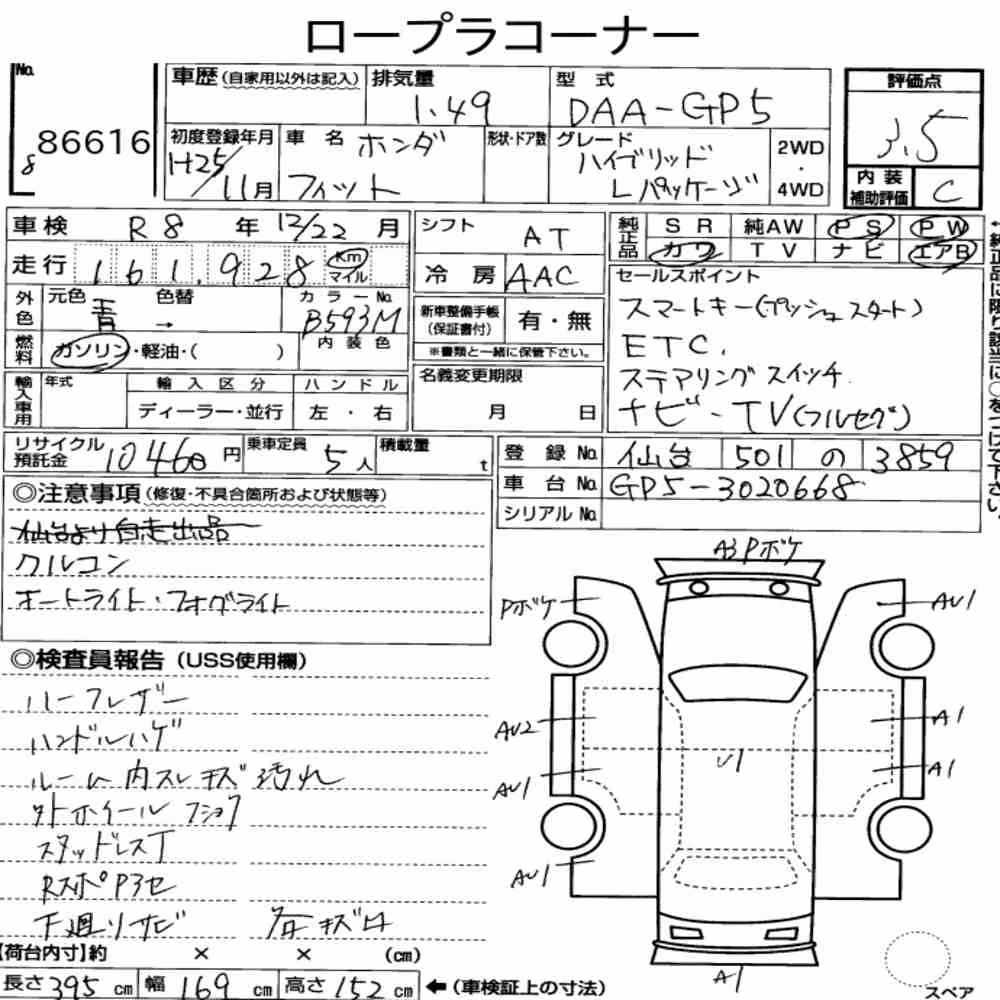 ロープラコーナー
No. 8 86616
車歴 (自家用以外は記入) 排気量 1.49 型式 DAA-GP5
初度登録年月 H25/11月 車名 ホンダ フィット 形状・ドア数 グレード ハイブリッド Lパッケージ 2WD・4WD
評価点 3.5
内装補助評価 C
車検 R8年 12/22月
走行 161,928 Km マイル
外色 元色 青 色替 → カラーNo. B593M
燃料 ガソリン・軽油・( ) 内装色
輸入車用 年式 輸入区分 ディーラー・並行 ハンドル 左・右
シフト AT
冷房 AAC
新車整備手帳(保証書付) 有・無
※書類と一緒に保管下さい。
名義変更期限 月 日
純正品 SR 純AW PS PW
カワ TV ナビ エアB
セールスポイント
スマートキー(プッシュスタート)
ETC.
ステアリングスイッチ
ナビ・TV(フルセグ)
リサイクル預託金 10460円 乗車定員 5人 積載量 t
登録No. 仙台 501 の 3859
車台No. GP5-3020668
シリアルNo.
◎注意事項 (修復・不具合箇所および状態等)
仙台より自走出品
クルコン
オートライト・フォグライト
◎検査員報告 (USS使用欄)
ハーフレザー
ハンドルハゲ
ルーム内スレキズ汚れ
外ホイール
スタッドレスT
RスポP3セ
下廻りサビ
A3 Pボケ
Pボケ
AU1
AU2
A1
AU1
A1
U1
AU1
A1
スペア
【荷台内寸】約 × × (cm)
長さ 395 cm 幅 169 cm 高さ 152 cm ←(車検証上の寸法)